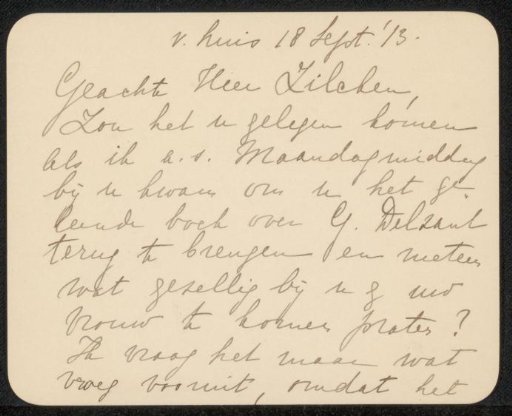 v. huis 18 Sept. '13.
Geachte Heer Zilcken,
Zou het u gelegen komen
als ik a.s. Maandagmiddag
bij u kwam om u het ge-
leende boek over G. Delzant
terug te brengen en meteen
wat gezellig bij u & uw
vrouw te komen praten?
Ik vraag het maar wat
vroeg vooruit, omdat het